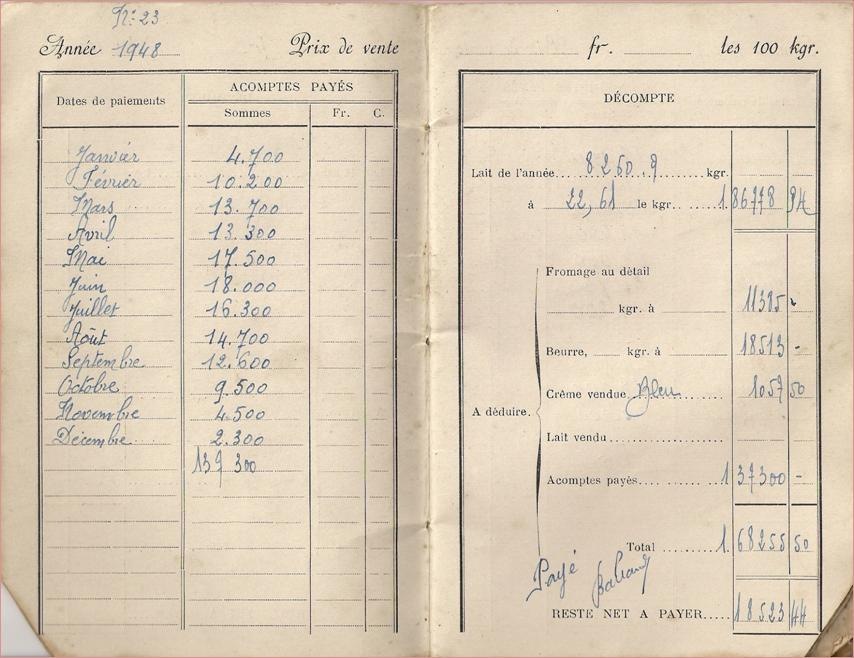 N° 23
Année 1948 Prix de vente
Dates de paiements
ACOMPTES PAYÉS
Sommes Fr. C.
Janvier 4.700
Février 10.200
Mars 13.700
Avril 13.300
Mai 17.500
Juin 18.000
Juillet 16.300
Août 14.700
Septembre 12.600
Octobre 9.500
Novembre 4.500
Décembre 2.300
137 300
fr. les 100 kgr.
DÉCOMPTE
Lait de l'année 8260.9 kgr.
à 22,61 le kgr. 186778 94
A déduire.
Fromage au détail
kgr. à 11385 -
Beurre, kgr. à 18513 -
Crème vendue Bleu 1057 50
Lait vendu
Acomptes payés 137300 -
Total 168255 50
Payé
RESTE NET A PAYER 18523 44